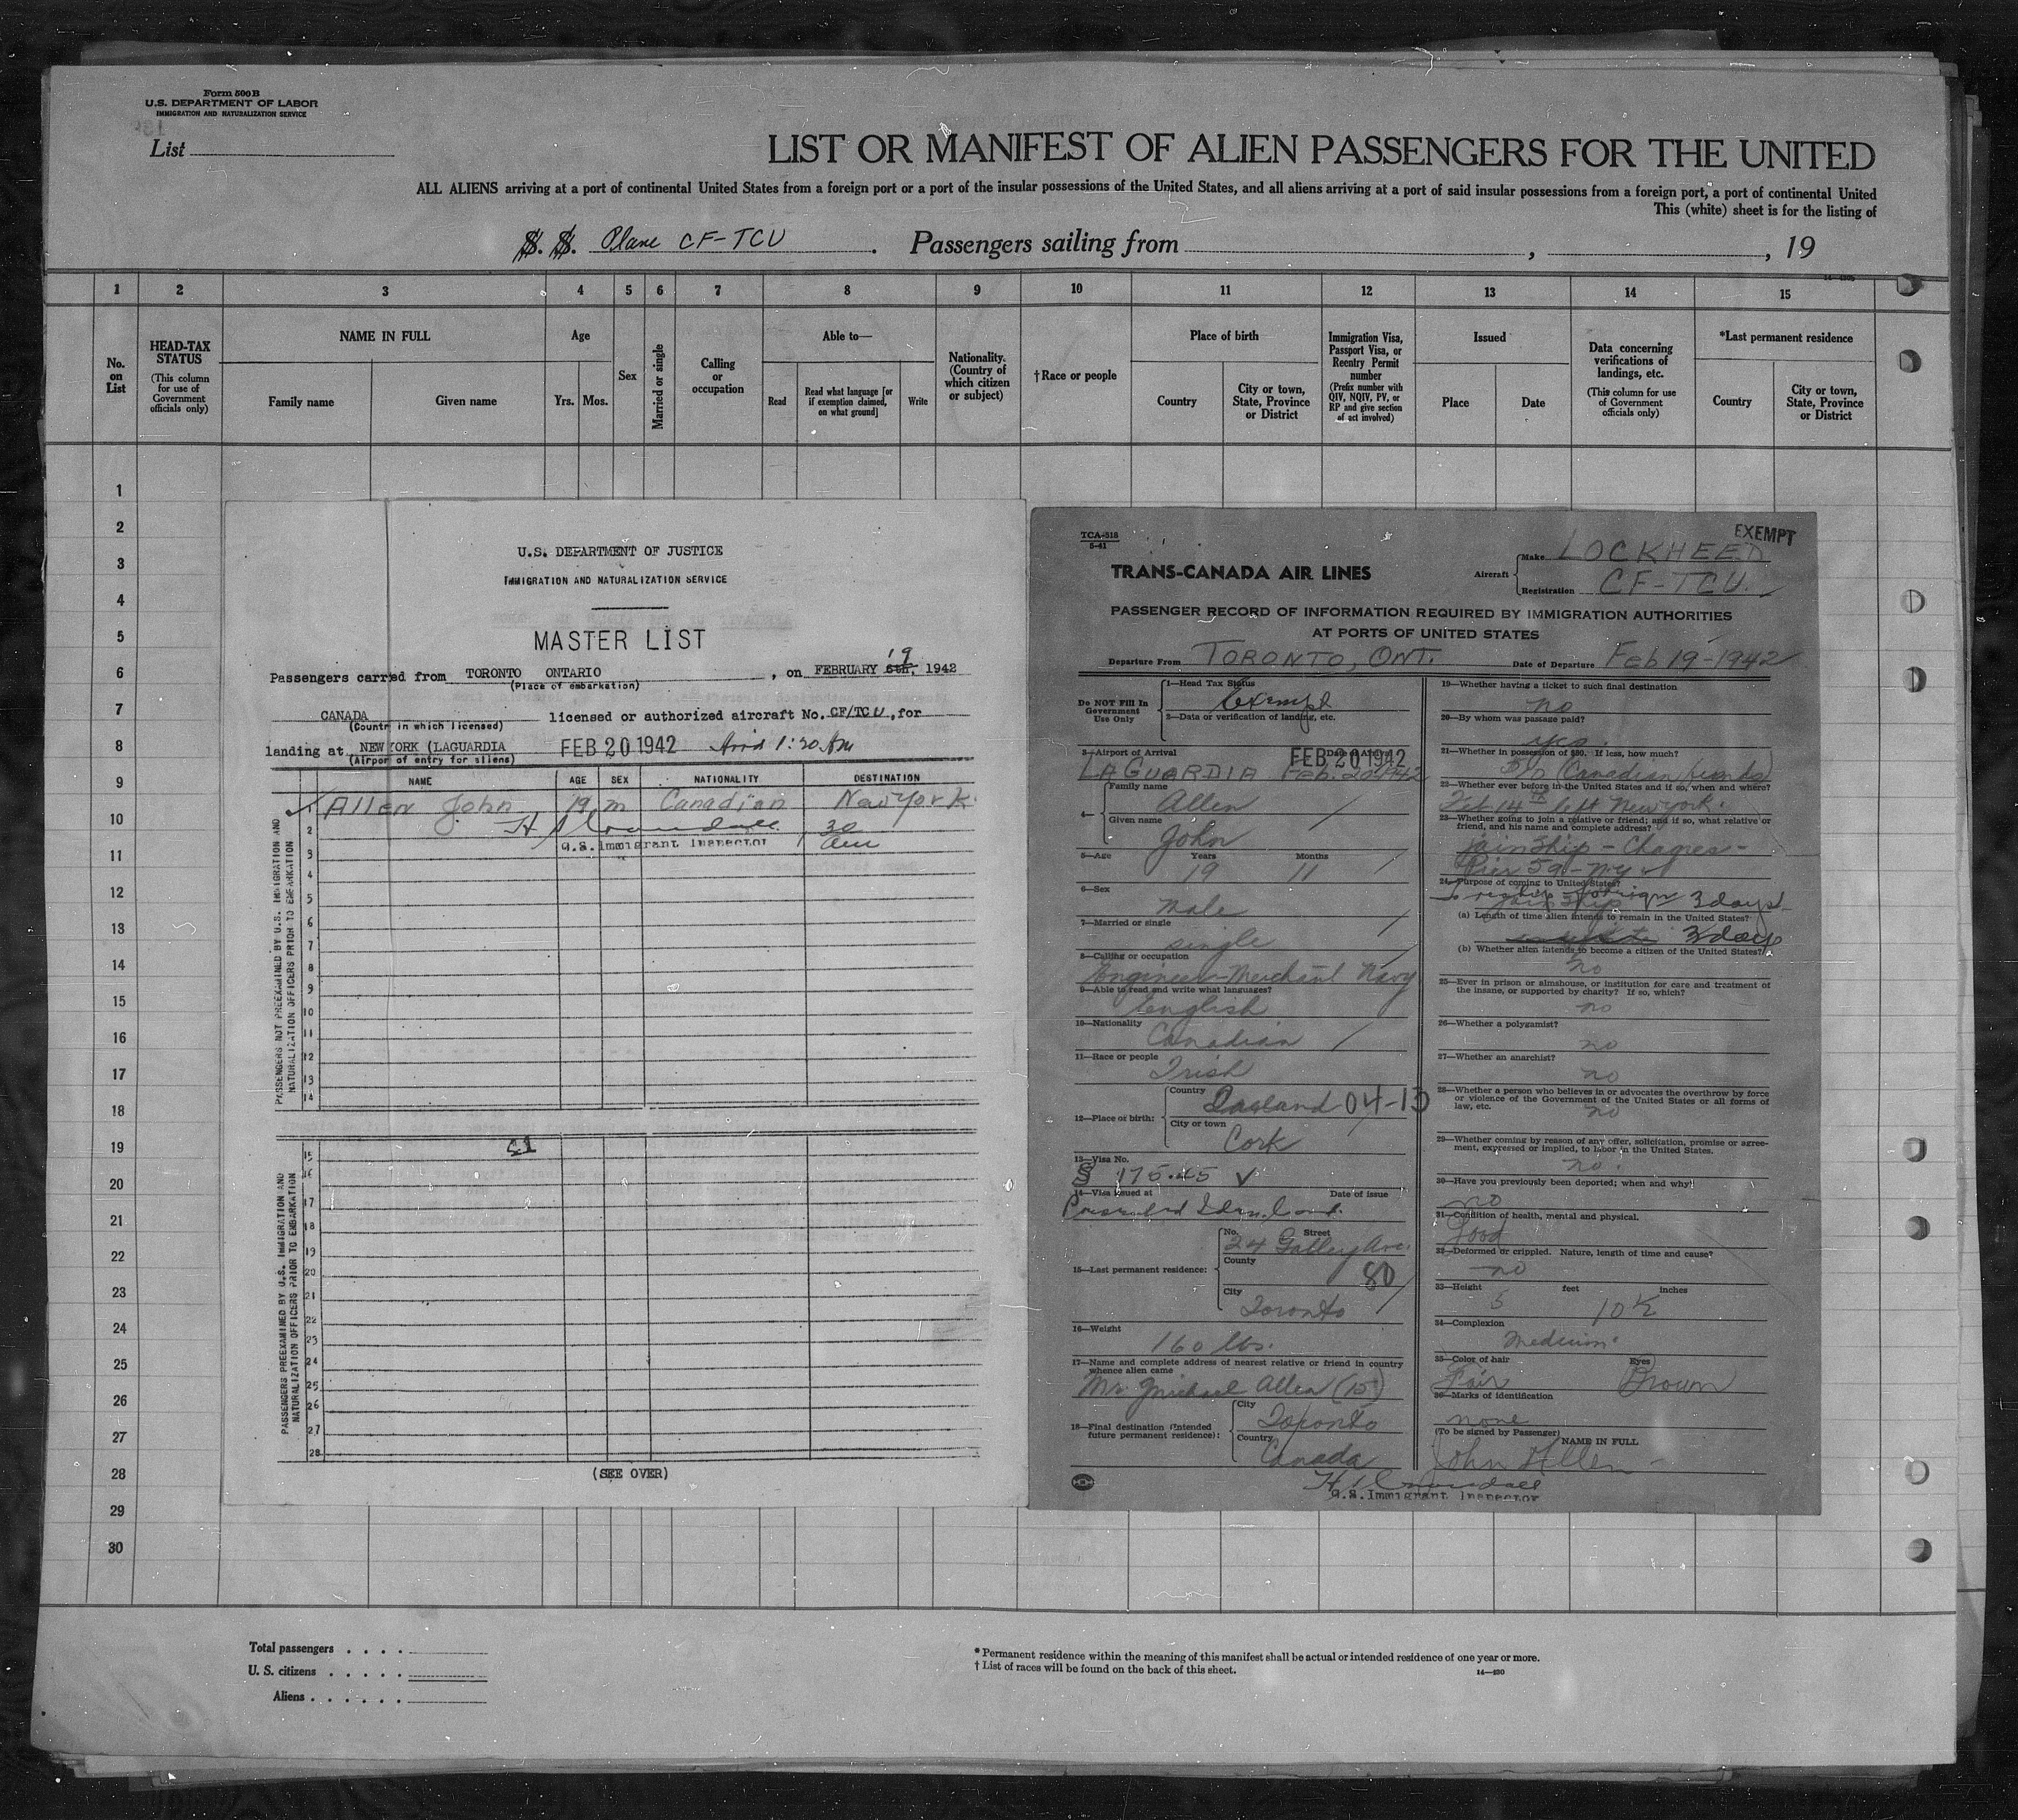 Form 500B
U.S. DEPARTMENT OF LABOR
IMMIGRATION AND NATURALIZATION SERVICE
List
LIST OR MANIFEST OF ALIEN PASSENGERS FOR THE UNITED
ALL ALIENS arriving at a port of continental United States from a foreign port or a port of the insular possessions of the United States, and all aliens arriving at a port of said insular possessions from a foreign port, a port of continental United
This (white) sheet is for the listing of
S. S. Plane CF-TCU . Passengers sailing from , , 19
1 2 3 4 5 6 7 8 9 10 11 12 13 14 15
No. on List
HEAD-TAX STATUS
(This column for use of Government officials only)
NAME IN FULL
Family name
Given name
Age
Yrs. Mos.
Sex
Married or single
Calling or occupation
Able to—
Read
Read what language [or if exemption claimed, on what ground]
Write
Nationality. (Country of which citizen or subject)
†Race or people
Place of birth
Country
City or town, State, Province or District
Immigration Visa, Passport Visa, or Reentry Permit number
(Prefix number with QIV, NQIV, PV, or RP and give section of act involved)
Issued
Place
Date
Data concerning verifications of landings, etc.
(This column for use of Government officials only)
*Last permanent residence
Country
City or town, State, Province or District
1
2
3
4
5
6
7
8
9
10
11
12
13
14
15
16
17
18
19
20
21
22
23
24
25
26
27
28
29
30
U.S. DEPARTMENT OF JUSTICE
IMMIGRATION AND NATURALIZATION SERVICE
MASTER LIST
Passengers carried from TORONTO ONTARIO , on FEBRUARY 6th. 19 1942
(Place of embarkation)
CANADA licensed or authorized aircraft No. CF/TCU, for
(Countr in which licensed)
landing at NEW YORK (LAGUARDIA FEB 20 1942 Arrd 1:20 AM
(Airpor of entry for aliens)
NAME AGE SEX NATIONALITY DESTINATION
1 ALLEN John 19 m Canadian New York.
2
U.S. Immigrant Inspector
3
4
5
6
7
8
9
10
11
12
13
14
PASSENGERS NOT PREEXAMINED BY U.S. IMMIGRATION AND NATURALIZATION OFFICERS PRIOR TO EMBARKATION
41
15
16
17
18
19
20
21
22
23
24
25
26
27
28
PASSENGERS PREEXAMINED BY U.S. IMMIGRATION AND NATURALIZATION OFFICERS PRIOR TO EMBARKATION
(SEE OVER)
TCA-518
5-41
EXEMPT
TRANS-CANADA AIR LINES
Aircraft
Make LOCKHEED
Registration CF-TCU.
PASSENGER RECORD OF INFORMATION REQUIRED BY IMMIGRATION AUTHORITIES
AT PORTS OF UNITED STATES
Departure From TORONTO, ONT. Date of Departure Feb 19-1942
Do NOT Fill In Government Use Only
1—Head Tax Status
Exempt
2—Data or verification of landing, etc.
3—Airport of Arrival Date of Arrival
FEB 20 1942
LAGUARDIA Feb. 20 1942
4—
Family name
Allen
Given name
John
5—Age Years Months
19 11
6—Sex
male
7—Married or single
single
8—Calling or occupation
Engineer-Merchant Navy
9—Able to read and write what languages?
English
10—Nationality
Canadian
11—Race or people
Irish
12—Place of birth:
Country
04-13
City or town
Cork
13—Visa No.
§ 175.45 ✓
14—Visa issued at Date of issue
15—Last permanent residence:
No. Street
24 Galley Ave.
County
80
City
Toronto
16—Weight
160 lbs.
17—Name and complete address of nearest relative or friend in country whence alien came
Mr. Michael Allen (15)
18—Final destination (Intended future permanent residence):
City
Toronto
Country
Canada
19—Whether having a ticket to such final destination
no
20—By whom was passage paid?
yes.
21—Whether in possession of $50. If less, how much?
(Canadian funds)
22—Whether ever before in the United States and if so, when and where?
Feb 14th left New York.
23—Whether going to join a relative or friend; and if so, what relative or friend, and his name and complete address?
join ship - Chagres -
Pier 59 - N.Y.
24—Purpose of coming to United States?
join ship
foreign 3 days
(a) Length of time alien intends to remain in the United States?
3 days
(b) Whether alien intends to become a citizen of the United States?
no
25—Ever in prison or almshouse, or institution for care and treatment of the insane, or supported by charity? If so, which?
no
26—Whether a polygamist?
no
27—Whether an anarchist?
no
28—Whether a person who believes in or advocates the overthrow by force or violence of the Government of the United States or all forms of law, etc.
no
29—Whether coming by reason of any offer, solicitation, promise or agreement, expressed or implied, to labor in the United States.
no.
30—Have you previously been deported; when and why?
no
31—Condition of health, mental and physical.
Good
32—Deformed or crippled. Nature, length of time and cause?
no
33—Height feet inches
5 10½
34—Complexion
Medium.
35—Color of hair Eyes
Fair Brown
36—Marks of identification
none
(To be signed by Passenger) NAME IN FULL
John Allen
U.S. Immigrant Inspector
Total passengers
U. S. citizens
Aliens
* Permanent residence within the meaning of this manifest shall be actual or intended residence of one year or more.
† List of races will be found on the back of this sheet.
14—430